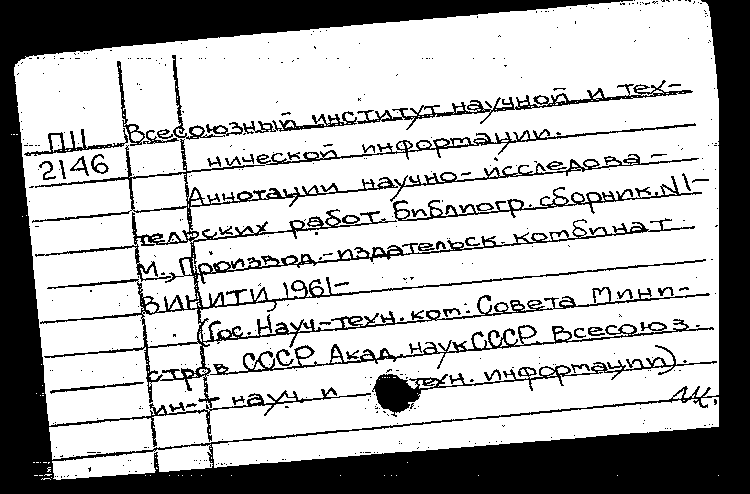 Всесоюзный институт научной и тех-
П11
2146
нической информации.
Аннотации научно-исследова-
тельских работ. Библиогр. сборник. N1-
М., Производ.-издательск. комбинат
ВИНИТИ, 1961-
(Гос. Науч.-техн. ком. Совета Мини-
стров СССР. Акад. наук СССР. Всесоюз.
ин-т науч. и техн. информации).